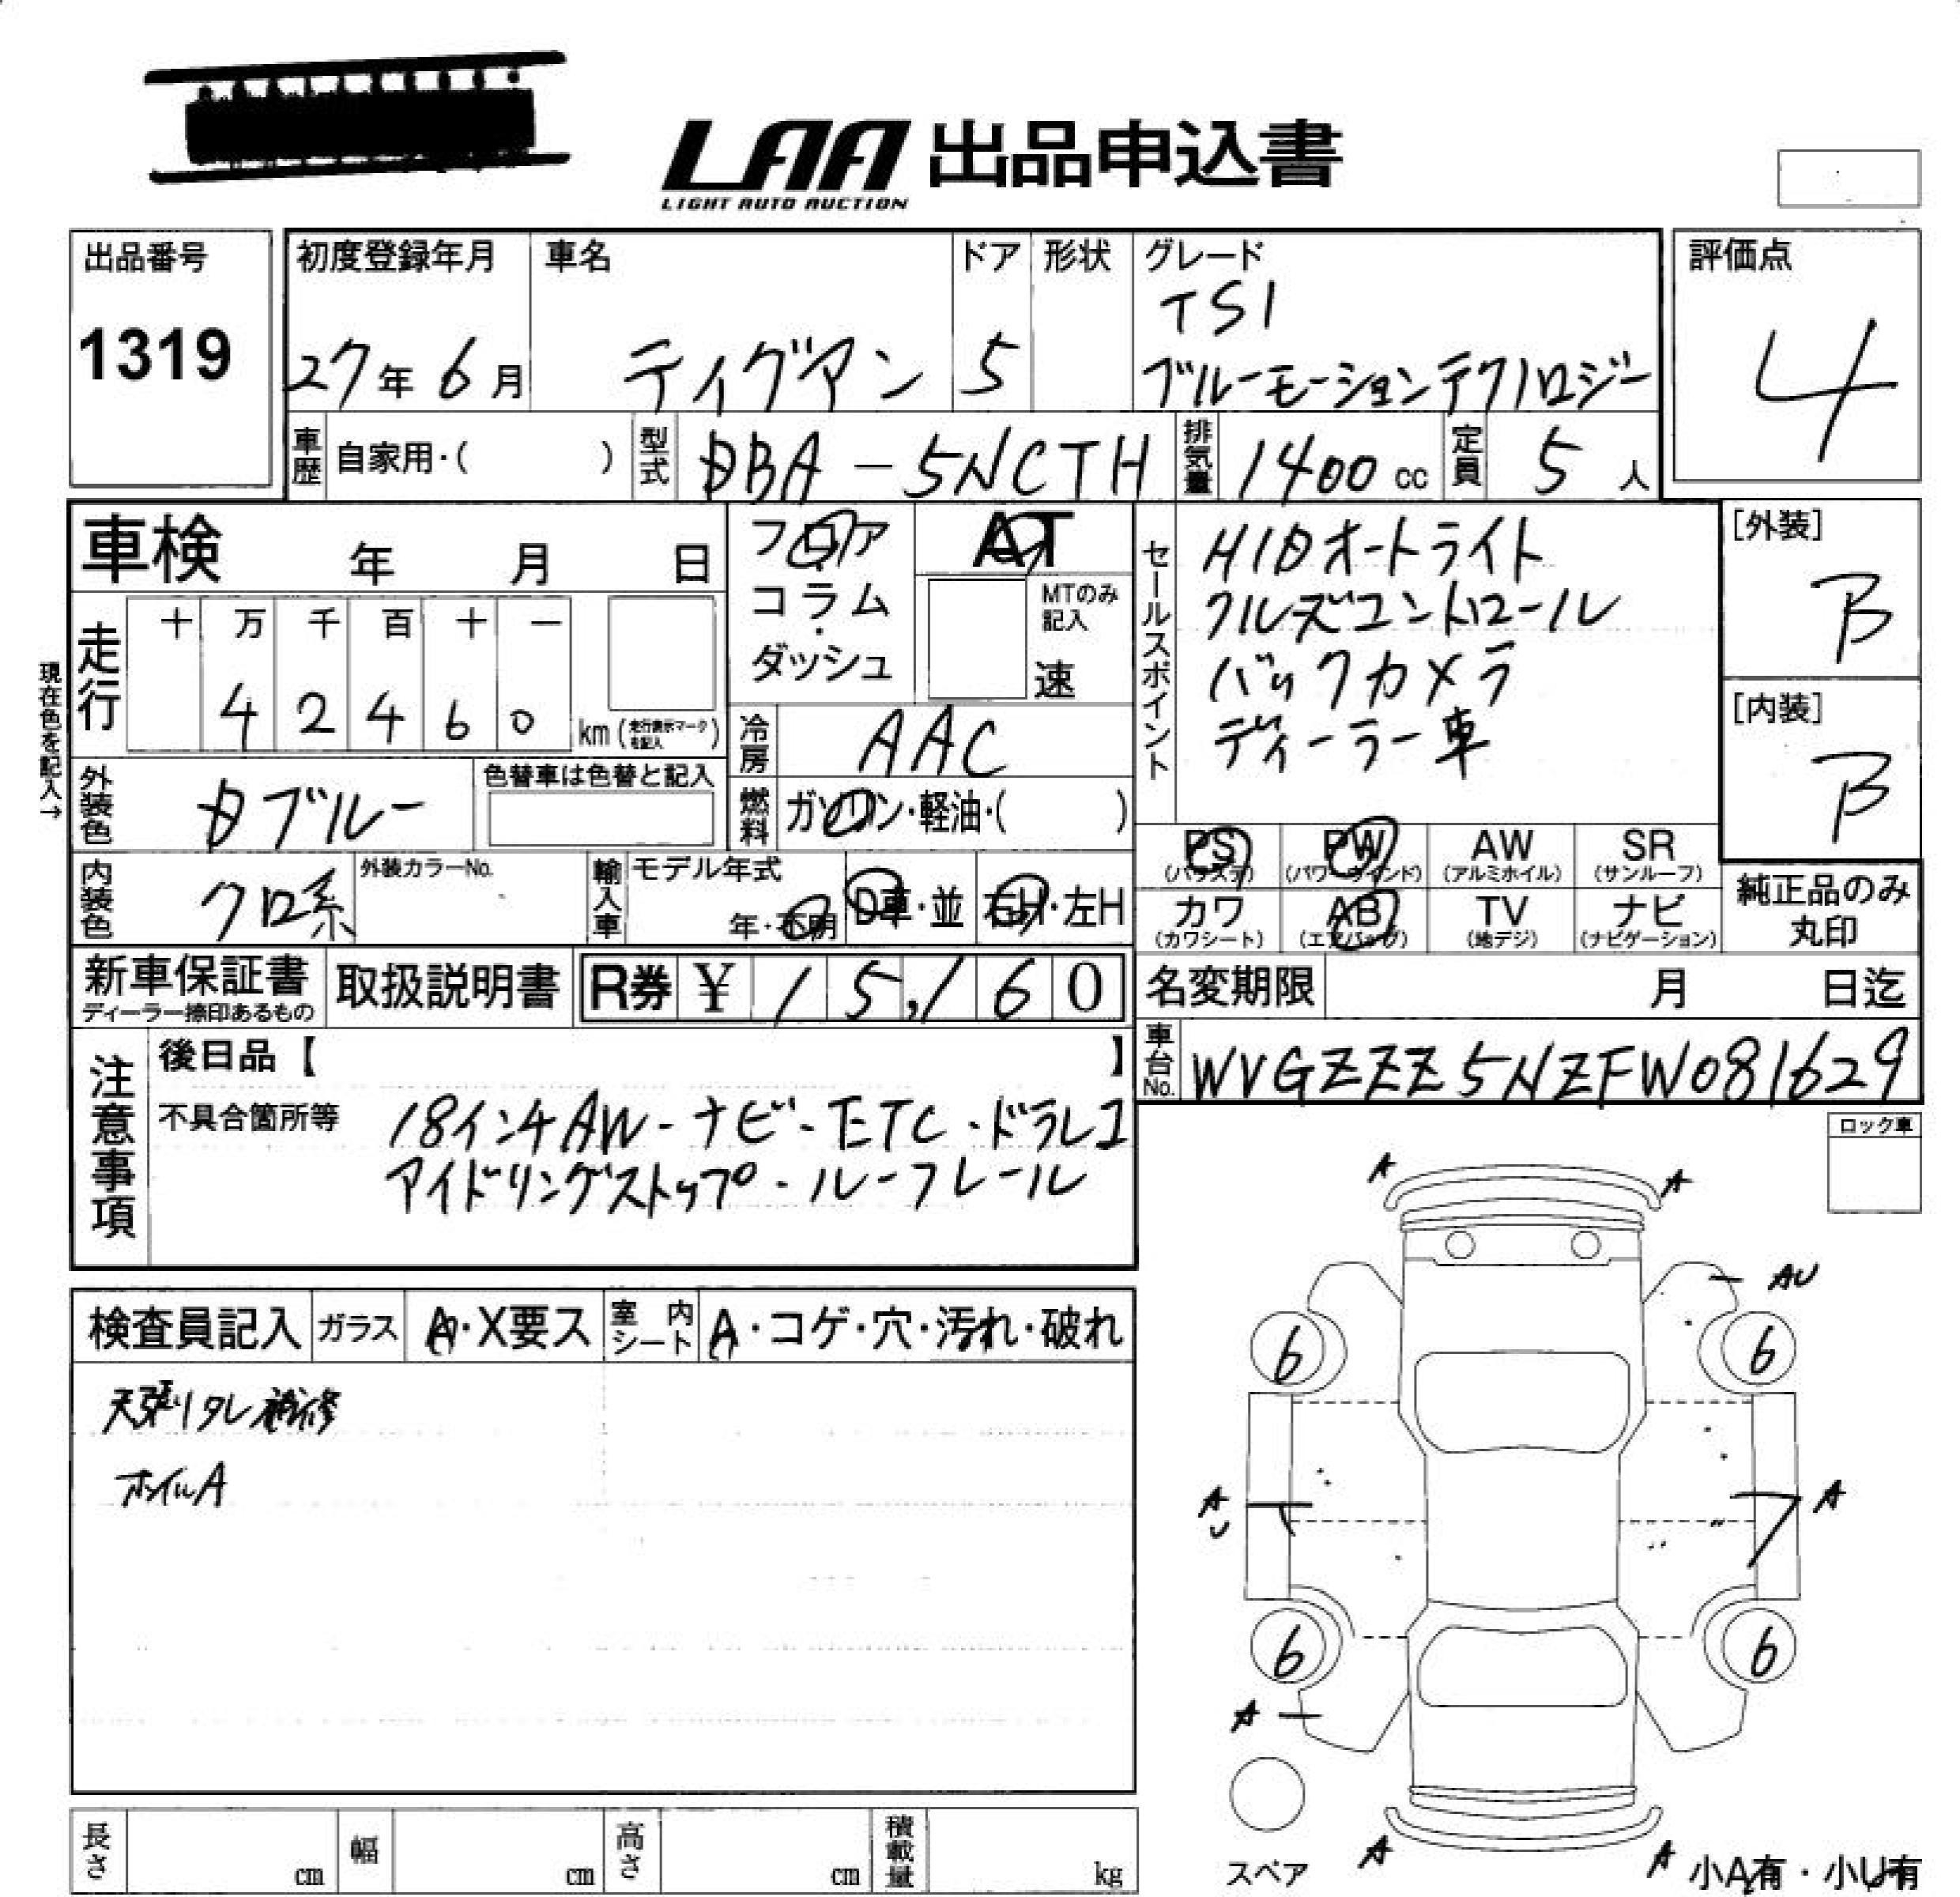 LAA 出品申込書
LIGHT AUTO AUCTION
出品番号
1319
初度登録年月
27年6月
車名
ティグアン
ドア
5
形状
グレード
TSI
ブルーモーションテクノロジー
評価点
4
車歴
自家用・( )
型式
DBA-5NCTH
排気量
1400 cc
定員
5 人
車検 年 月 日
現在色を記入→
走行
十 万 千 百 十 一
4 2 4 6 0
km (走行表示マークを記入)
フロア
・
コラム
・
ダッシュ
AT
MTのみ
記入
速
冷房
AAC
燃料
ガソリン・軽油・( )
セールスポイント
HIDオートライト
クルーズコントロール
バックカメラ
ディーラー車
[外装]
B
[内装]
B
外装色
Dブルー
色替車は色替と記入
内装色
クロ系
外装カラーNo.
輸入車
モデル年式
年・不明
D車・並
右H・左H
PS
(パワステ)
PW
(パワーウィンド)
AW
(アルミホイル)
SR
(サンルーフ)
カワ
(カワシート)
AB
(エアバッグ)
TV
(地デジ)
ナビ
(ナビゲーション)
純正品のみ
丸印
新車保証書
ディーラー捺印あるもの
取扱説明書
R券 ¥ 15,160
名変期限 月 日迄
車台No.
WVGZZZ5NZFW081629
注意事項
後日品【 】
不具合箇所等
18インチAW・ナビ・ETC・ドラレコ
アイドリングストップ・ルーフレール
ロック車
検査員記入
ガラス
A・X要ス
室内シート
A・コゲ・穴・汚れ・破れ
天張りタレ補修
ホイルA
A
A
AU
6
6
A
U
A
6
6
A
スペア
A
A
小A有・小U有
長さ
cm
幅
cm
高さ
cm
積載量
kg